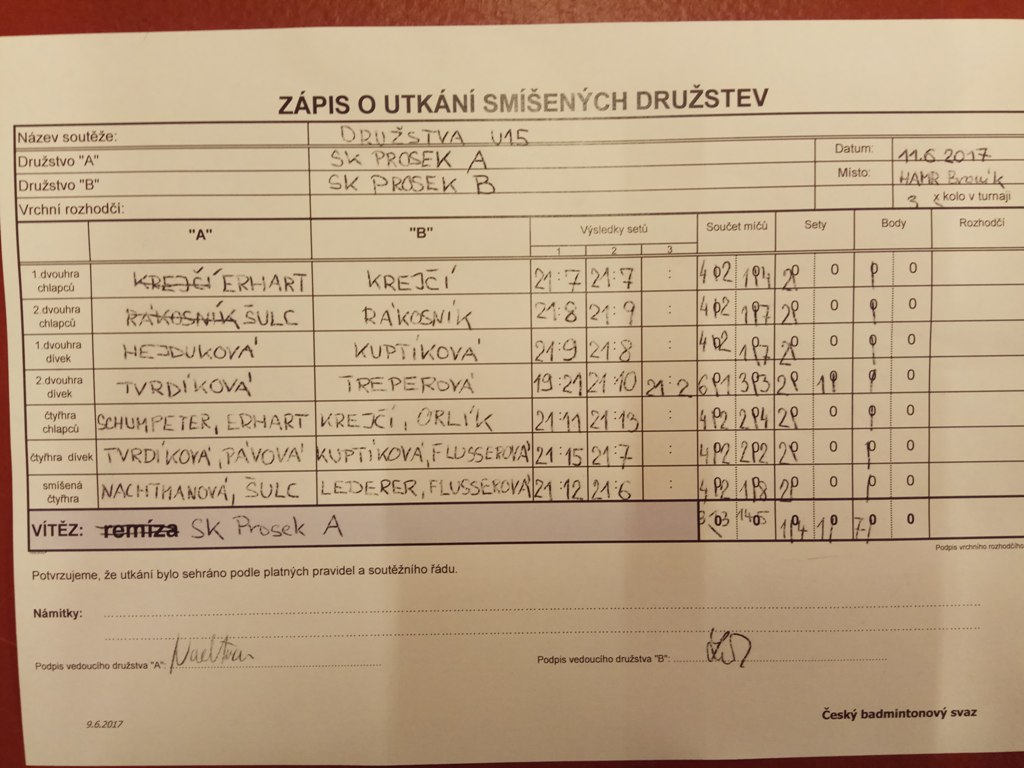 ZÁPIS O UTKÁNÍ SMÍŠENÝCH DRUŽSTEV
Název soutěže: DRUŽSTVA U15
Družstvo "A" SK PROSEK A Datum: 11.6.2017
Družstvo "B" SK PROSEK B Místo: HAMR Braník
Vrchní rozhodčí: 3 x kolo v turnaji
"A" "B" Výsledky setů Součet míčů Sety Body Rozhodčí
1 2 3
1.dvouhra chlapců KREJČÍ ERHART KREJČÍ 21:7 21:7 : 42 14 2 0 0
2.dvouhra chlapců RÁKOSNÍK ŠULC RÁKOSNÍK 21:8 21:9 : 42 17 2 0 0
1.dvouhra dívek HEJDUKOVÁ KUPTÍKOVÁ 21:9 21:8 : 42 17 2 0 0
2.dvouhra dívek TVRDÍKOVÁ TREPEROVÁ 19:21 21:10 21:2 61 33 2 1 0
čtyřhra chlapců SCHUMPETER, ERHART KREJČÍ, ORLÍK 21:11 21:13 : 42 24 2 0 0
čtyřhra dívek TVRDÍKOVÁ, PÁVOVÁ KUPTÍKOVÁ, FLUSSEROVÁ 21:15 21:7 : 42 22 2 0 0
smíšená čtyřhra NACHTMANOVÁ, ŠULC LEDERER, FLUSSEROVÁ 21:12 21:6 : 42 18 2 0 0
VÍTĚZ: remíza SK Prosek A 14 1 7 0
Podpis vrchního rozhodčího
Potvrzujeme, že utkání bylo sehráno podle platných pravidel a soutěžního řádu.
Námitky:
Podpis vedoucího družstva "A": Podpis vedoucího družstva "B":
9.6.2017 Český badmintonový svaz